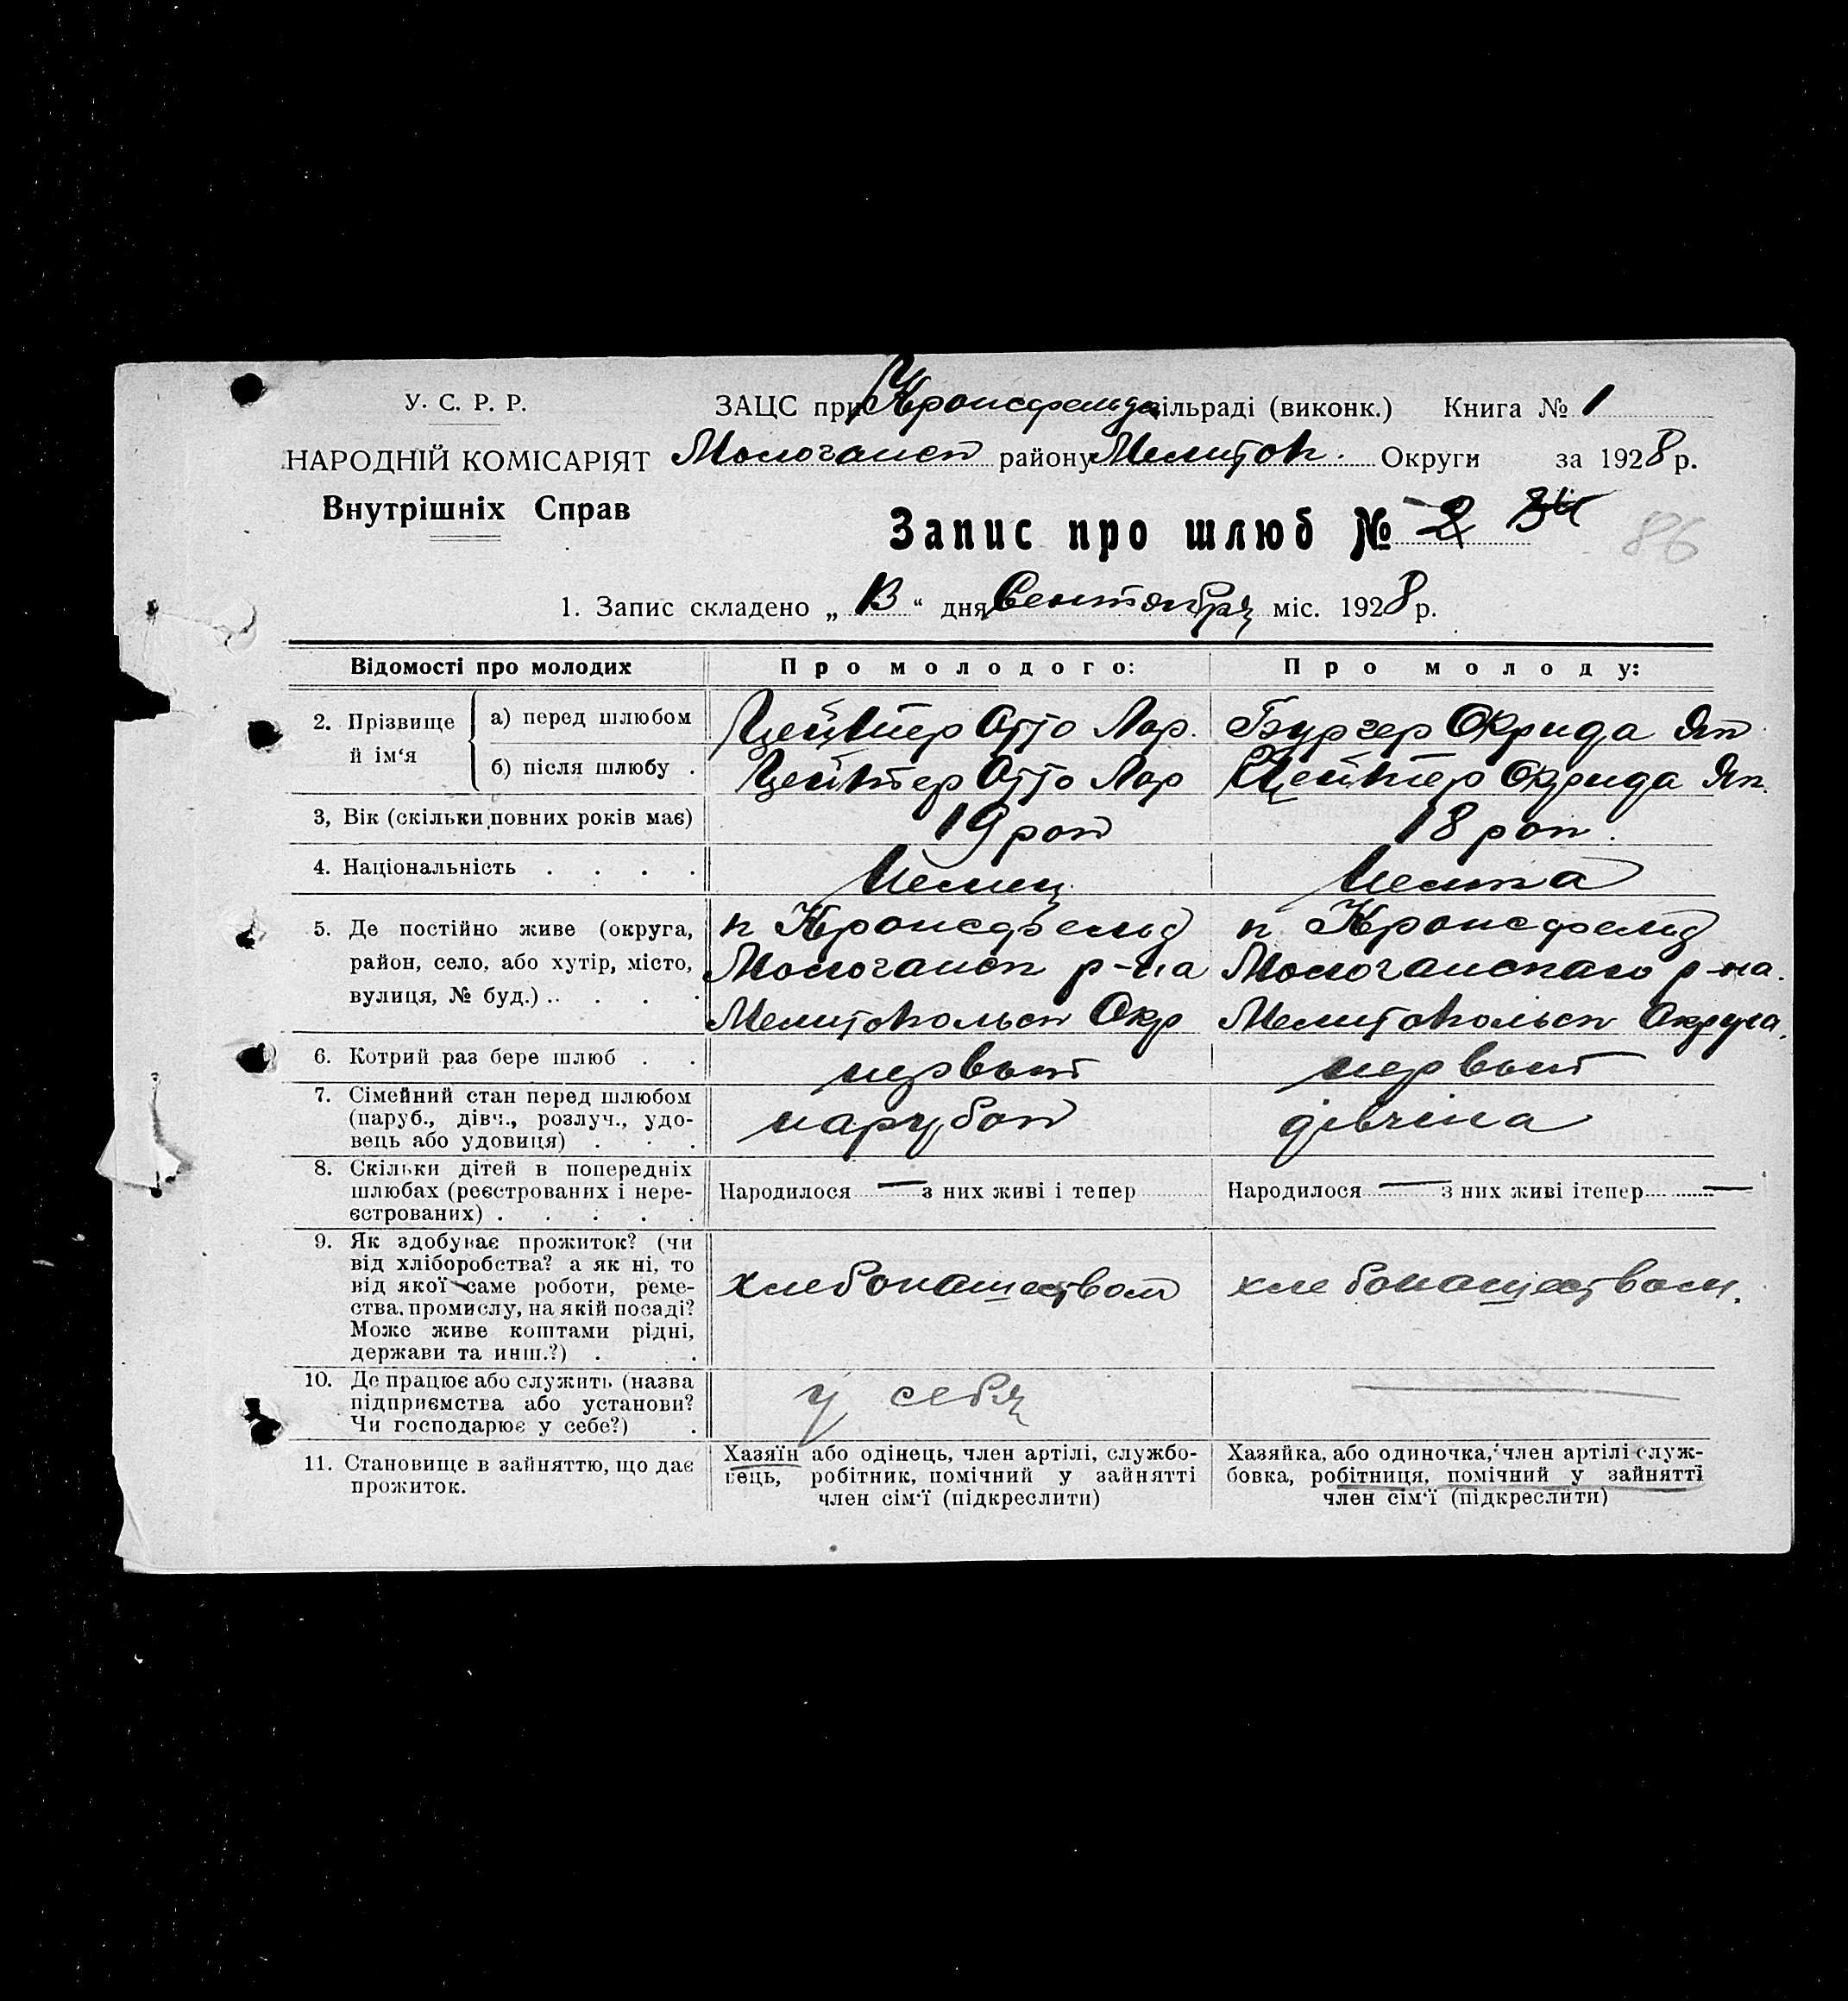 У. С. Р. Р.
НАРОДНІЙ КОМІСАРІЯТ
Внутрішніх Справ
ЗАЦС при Кронсфельд сільраді (виконк.) Книга № 1
Молочанск району Мелитоп. Округи за 1928 р.
Запис про шлюб № 2
86
1. Запис складено „ 13 “ дня Сентября міс. 1928 р.
Відомості про молодих Про молодого: Про молоду:
2. Прізвище й ім‘я
а) перед шлюбом Отто Бургер
б) після шлюбу . Отто
3, Вік (скільки повних років має) 19 рок 18 рок.
4. Національність . . . . Немец Немка
5. Де постійно живе (округа, к Кронсфельд к Кронсфельд
район, село, або хутір, місто, Молочанск р-на Молочанскаго р-на.
вулиця, № буд.) .. . . . Мелитопольск Окр Мелитопольск Округа.
6. Котрий раз бере шлюб . . первый первый
7. Сімейний стан перед шлюбом
(паруб., дівч., розлуч., удо- парубок дівчіна
вець або удовиця) . . .
8. Скільки дітей в попередніх
шлюбах (реєстрованих і нере- Народилося — з них живі і тепер Народилося — з них живі ітепер —
єстрованих) . . . . .
9. Як здобуває прожиток? (чи
від хліборобства? а як ні, то
від якої саме роботи, реме- хлебопашеством хлебопашеством.
ства, промислу, на якій посаді?
Може живе коштами рідні,
держави та инш.?) . .
10. Де працює або служить (назва у себя —
підприємства або установи?
Чи господарює у себе?) .
11. Становище в зайняттю, що дає
прожиток.
Хазяїн або одінець, член артілі, службо-
вець, робітник, помічний у зайнятті
член сім‘ї (підкреслити)
Хазяйка, або одиночка, член артілі служ-
бовка, робітниця, помічний у зайнятті
член сім‘ї (підкреслити)